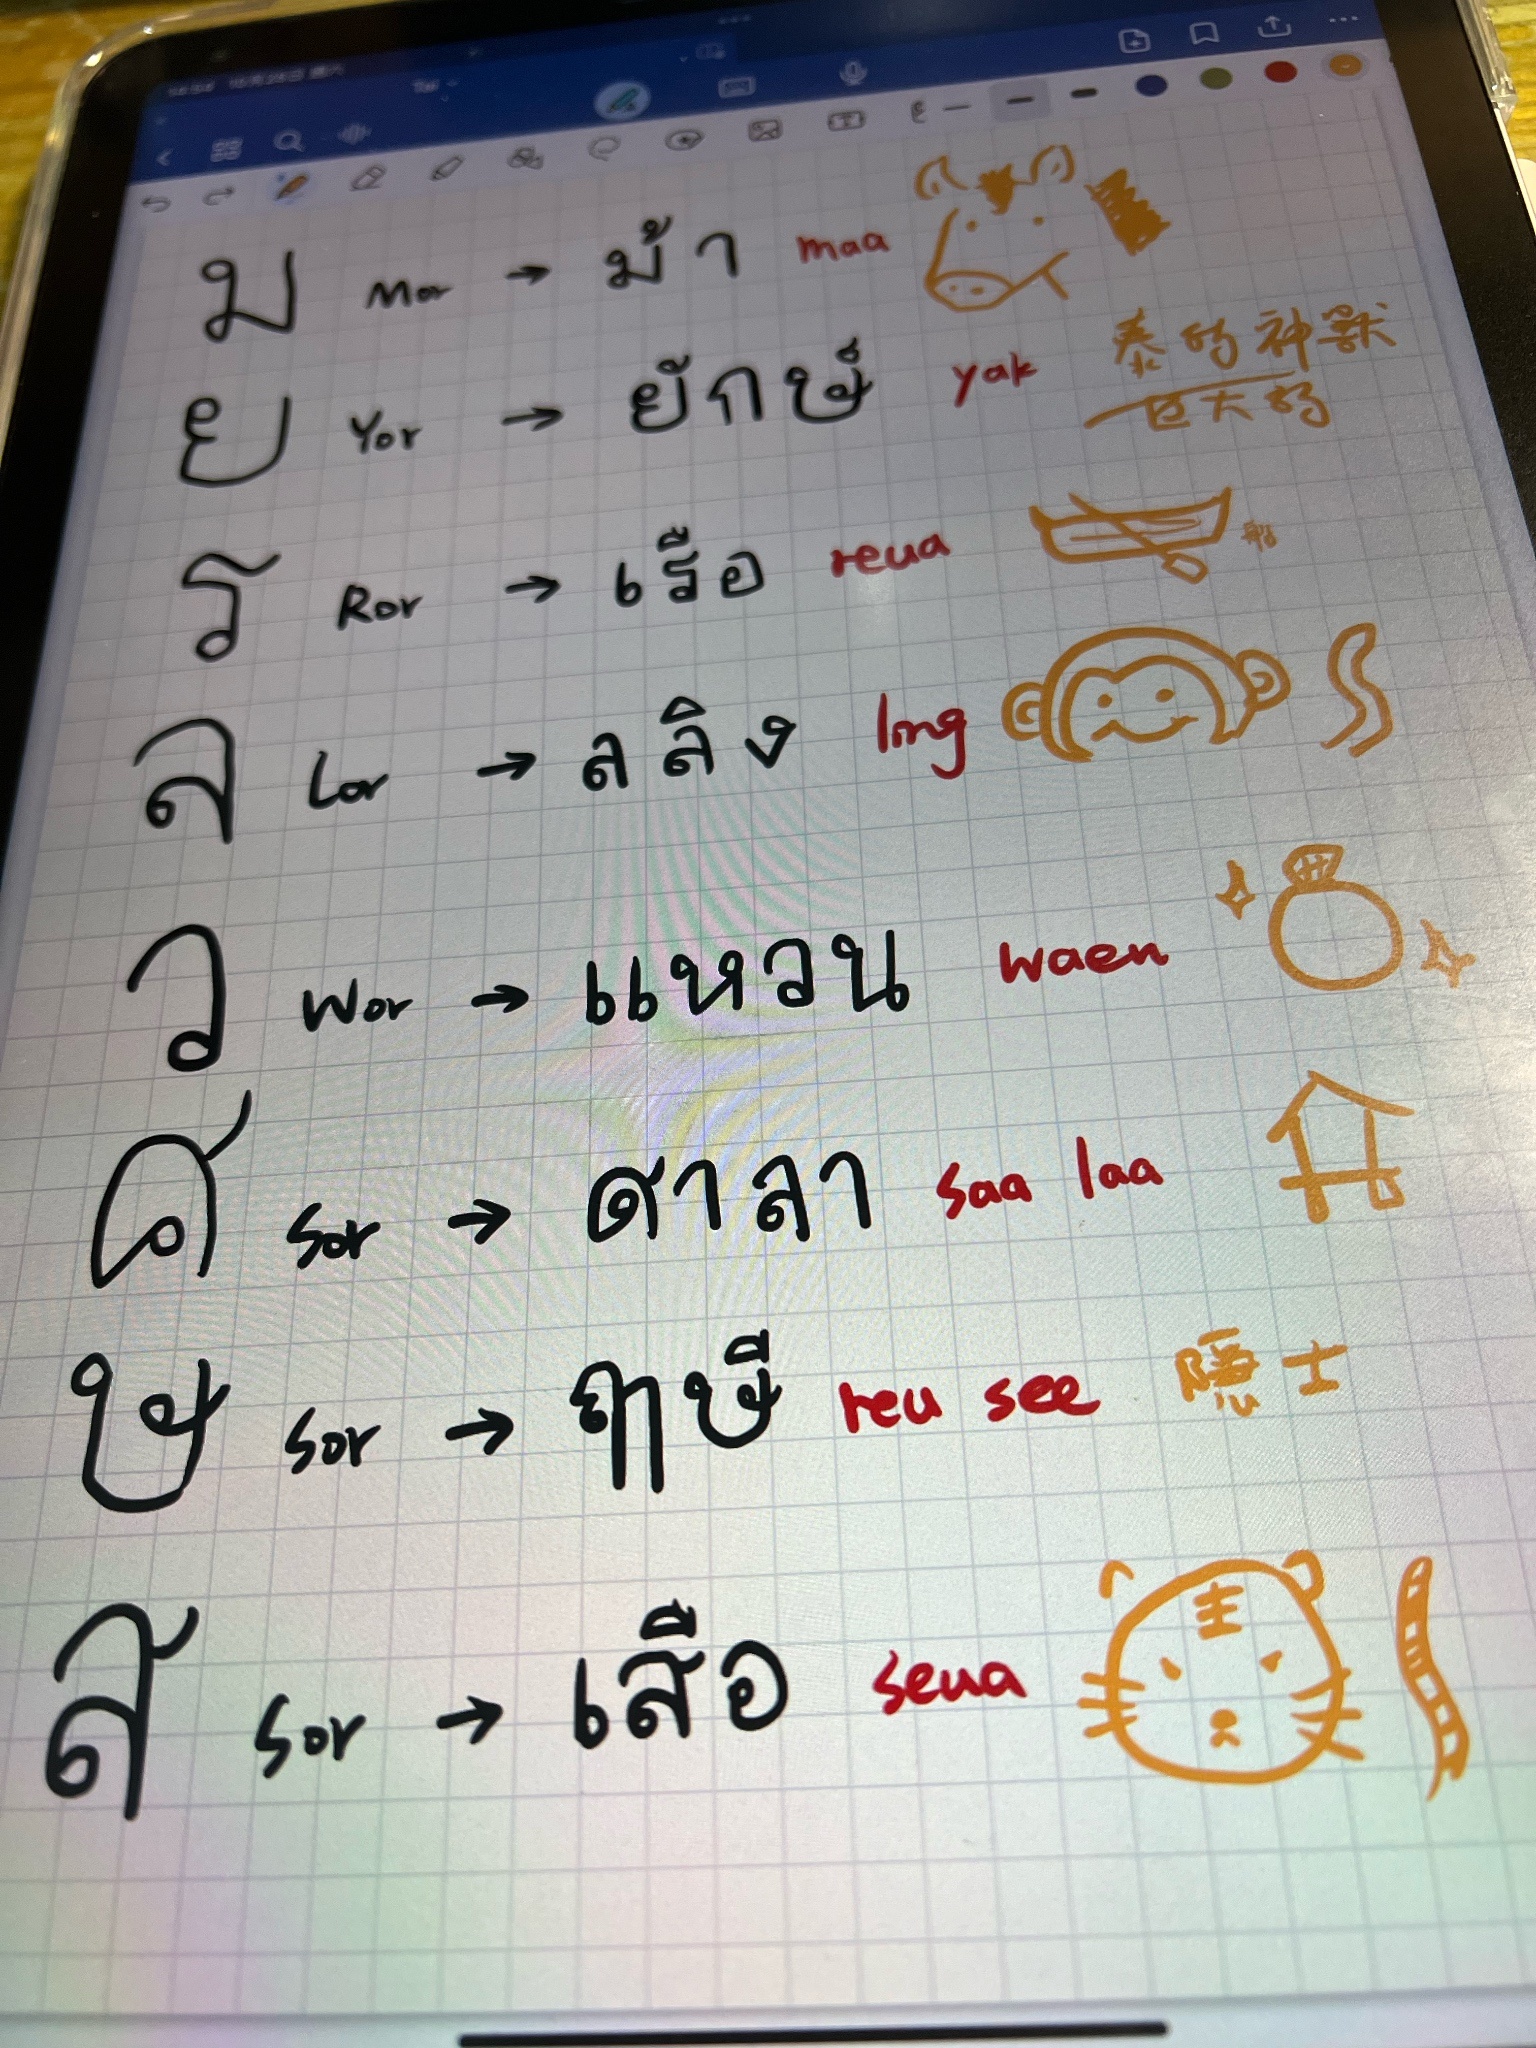 ม Mor → ม้า maa
ย Yor → ยักษ์ yak 泰的神獸
巨大的
ร Ror → เรือ reua 船
ล Lor → ลลิง ling
ว Wor → แหวน waen
ศ Sor → ศาลา saa laa
ษ Sor → ฤๅษี reu see 隱士
ส Sor → เสือ seua